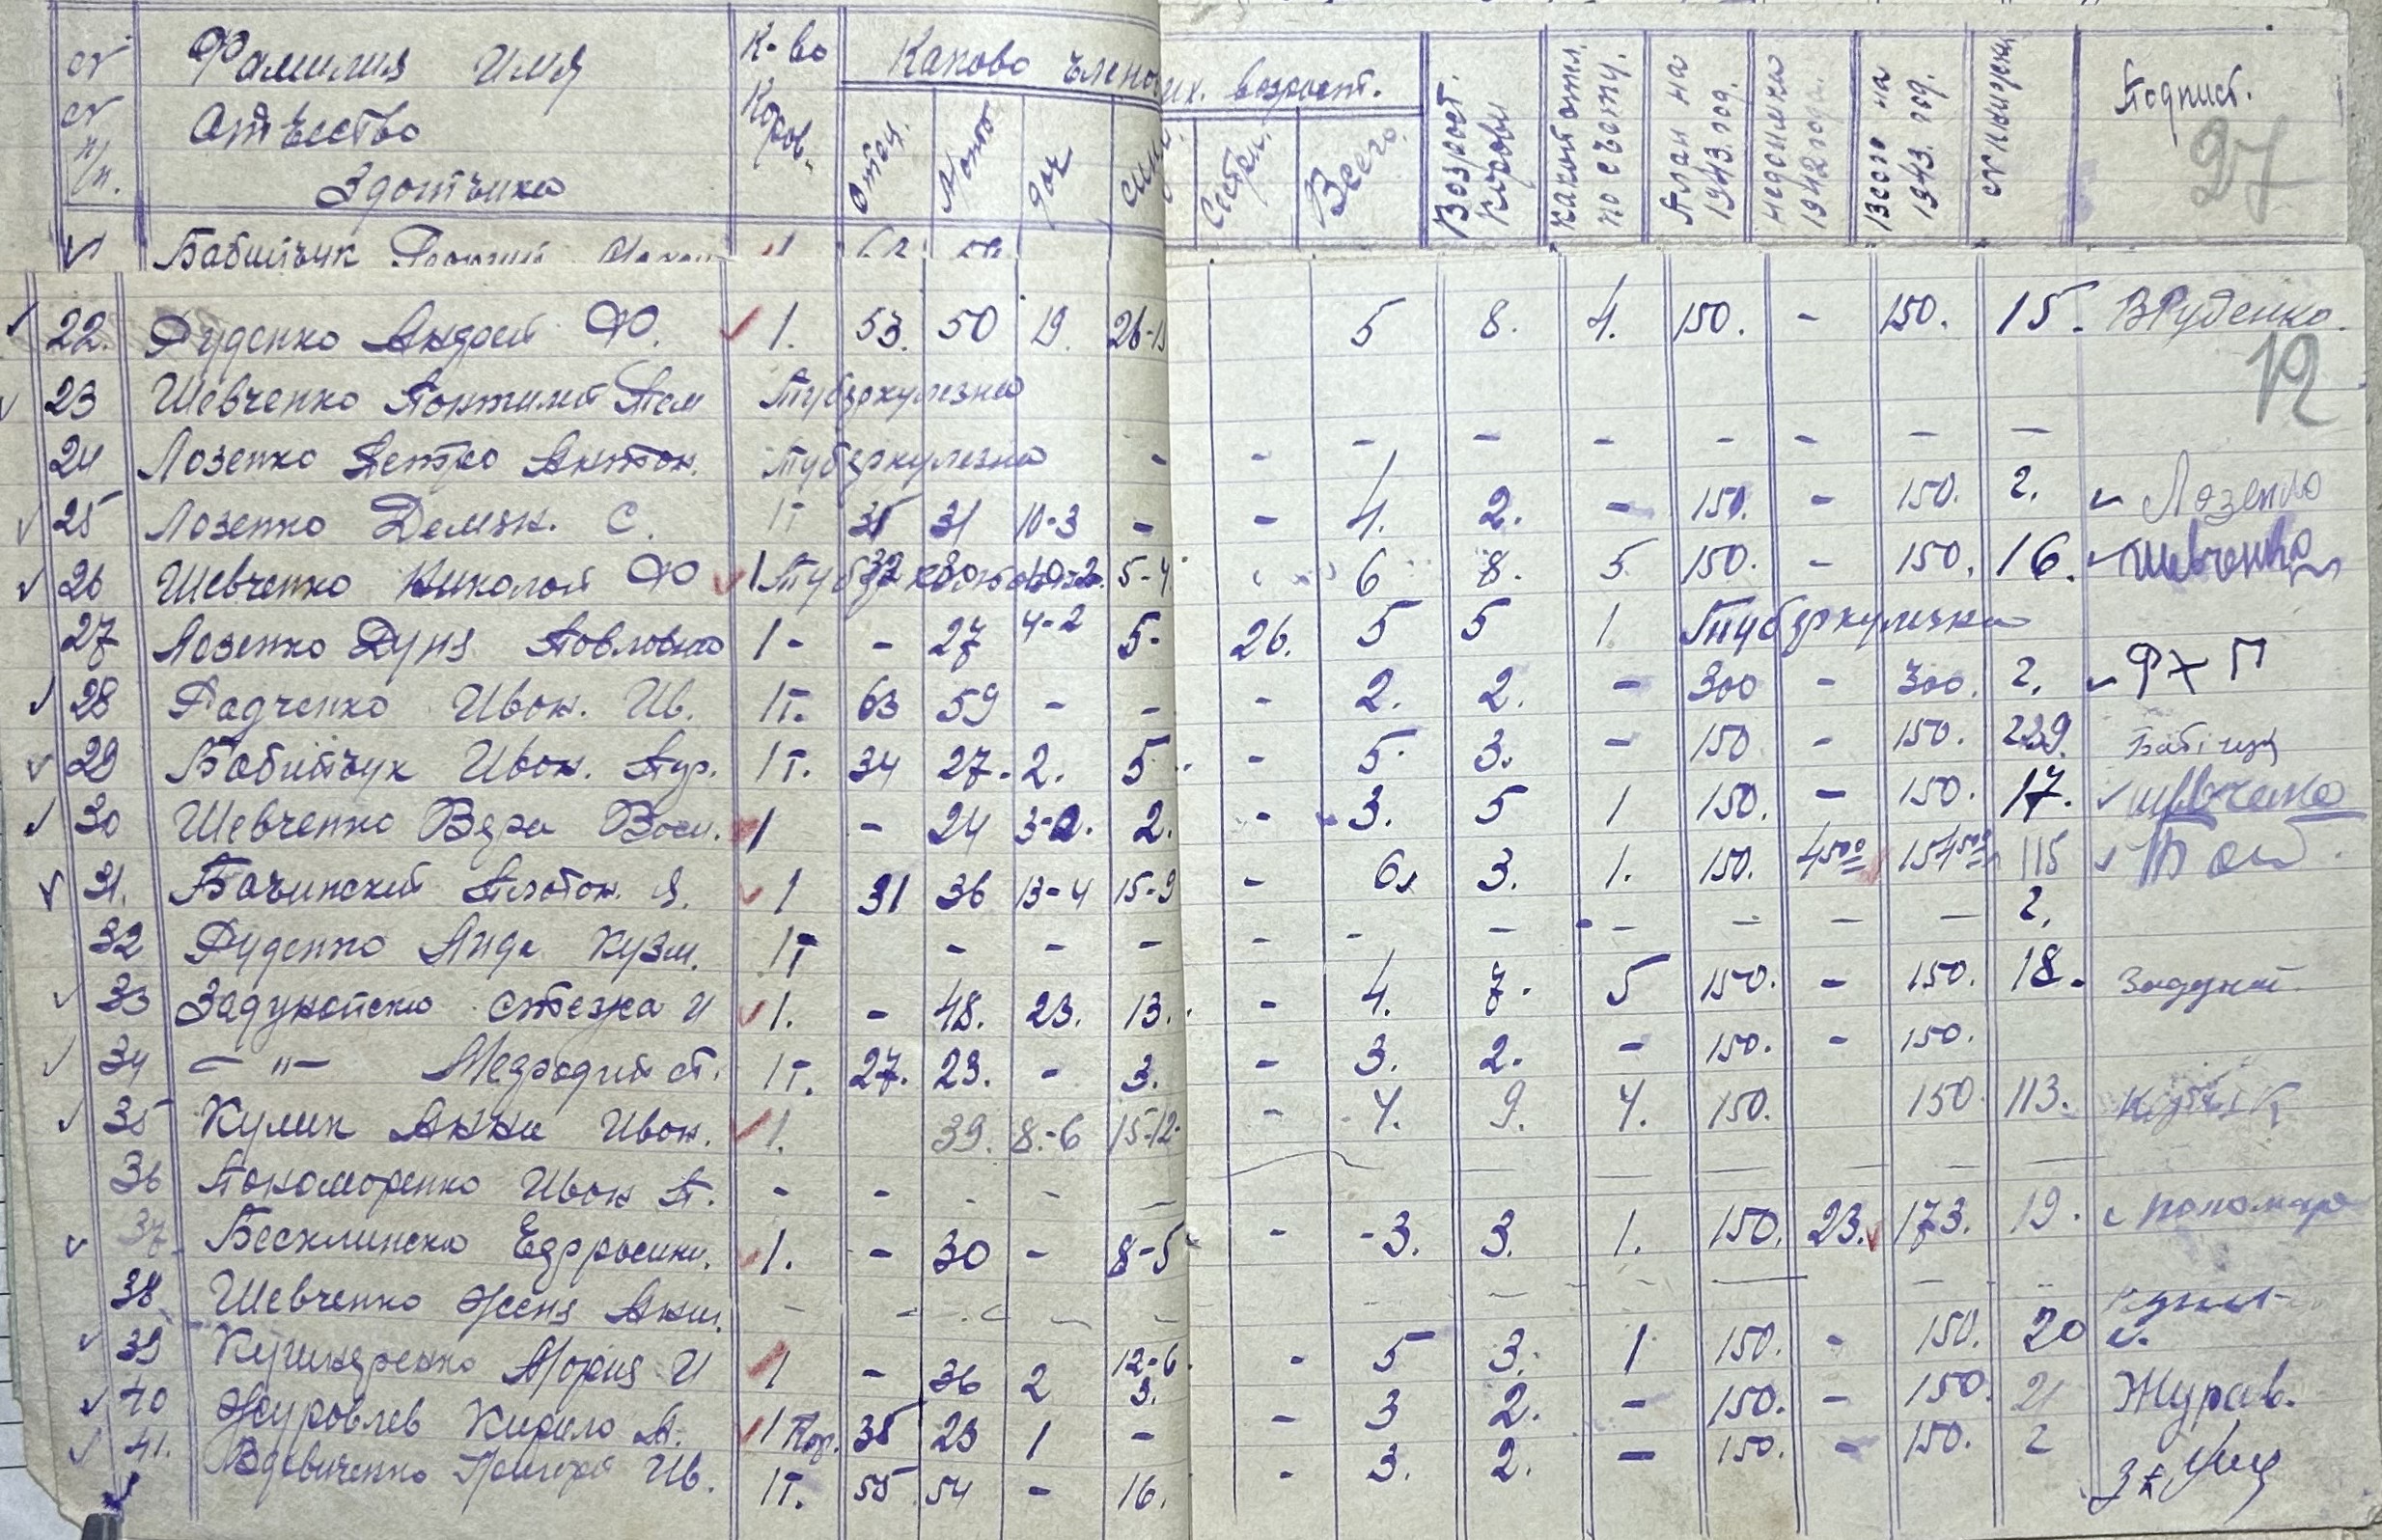 № № п/п. Фамилия Имя Отчество Здотчика К-во Коров. Каково членов их. возраст. Отец. Мать доч сын Сестра. Всего. Возраст. Коровы какой отел. по счету. План на 1943. год. недоимка 1942 года. Всего на 1943. год. № книжки Подпись.
27
Бабийчук
22. Руденко Андрей Ф. 1. 53. 50 19. 26-15 5 8. 4. 150. - 150. 15. ВРуденко.
12
23 Шевченко Пантилей Пем Туберкулезна
24 Лозенко Петро Антон. Туберкулезна - - - - - - - - -
25 Лозенко Демян. С. 1Т 35 31 10-3 - - 4. 2. - 150. - 150. 2. Лозенко
26 Шевченко Николай Ф 1 5-4 6 8. 5. 150. - 150. 16. Шевченко
27 Лозенко Дуня Павловна 1- - 27 4-2 5- 26. 5 5 1. Туберкулезна
28 Радченко Иван. Ив. 1Т. 63 59 - - - 2. 2. - 300 - 300. 2. РХП
29 Бабийчук Иван. 1Т. 34 27- 2. 5 - 5. 3. - 150 - 150. 229.
30 Шевченко Вера Васи. 1 - 24 3-2. 2. - 3. 5 1 150. - 150. 17. Шевченко
31. Бачинский Платон. Я. 1 31 36 13-4 15-9 - 6. 3. 1. 150. 4500 154500 115
32 Руденко Лида Кузм. 1Т - - - - - - - - - - 2.
33 Задунайска Степка И 1. - 48. 23. 13. - 4. 7. 5 150. - 150. 18. Задунай.
34 -"- Мефодий 1Т. 27. 23. - 3. - 3. 2. - 150. - 150.
35 Кулик Анна Иван. 1. 39. 8.-6 15-12. - 4. 9. 4. 150. 150 113.
36 Пономоренко Иван П. - - - - -
37. Бесклинска Ефросини. 1. - 30 - 8-5 - 3. 3. 1. 150. 23. 173. 19. Пономаре
38 Шевченко Женя Аким. - - - - -
39 Кушнеренко Мария И 1 - 36 2 12-6 3. - 5 3. 1 150. - 150. 20
40 Журовлев Кирило А. 1 Кор. 35 23 1 - - 3 2. - 150. - 150. 21 Журав.
41. Вдовиченко Григорй Ив. 1Т. 55 54 - 16. - 3. 2. - 150. - 150. 2